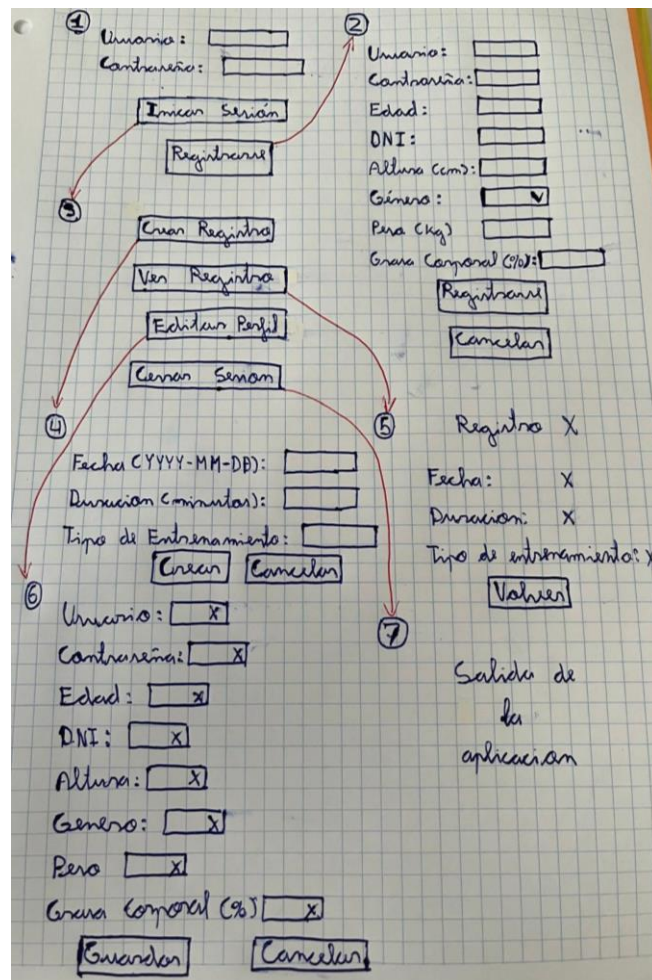 1
Usuario:
Contraseña:
Iniciar Sesión
Registrarse
2
Usuario:
Contraseña:
Edad:
DNI:
Altura (cm):
Género: v
Peso (Kg)
Grasa Corporal (%):
Registrarse
Cancelar
3
Crear Registro
Ver Registro
Editar Perfil
Cerrar Sesion
4
Fecha (YYYY-MM-DD):
Duracion (minutos):
Tipo de Entrenamiento:
Crear Cancelar
5
Registro X
Fecha: X
Duracion: X
Tipo de entrenamiento: X
Volver
6
Usuario: X
Contraseña: X
Edad: X
DNI: X
Altura: X
Genero: X
Peso X
Grasa Corporal (%) X
Guardar Cancelar
7
Salida de
la
aplicacion